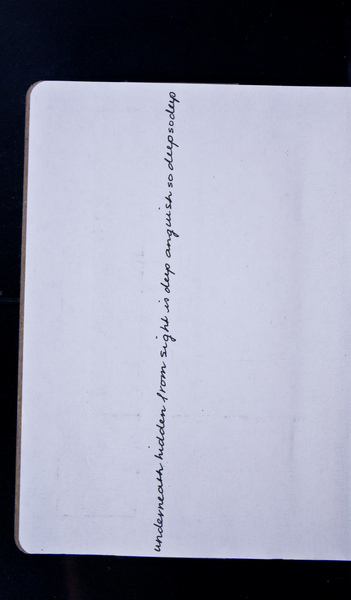 underneath hidden from sight is deep anguish so deep so deep